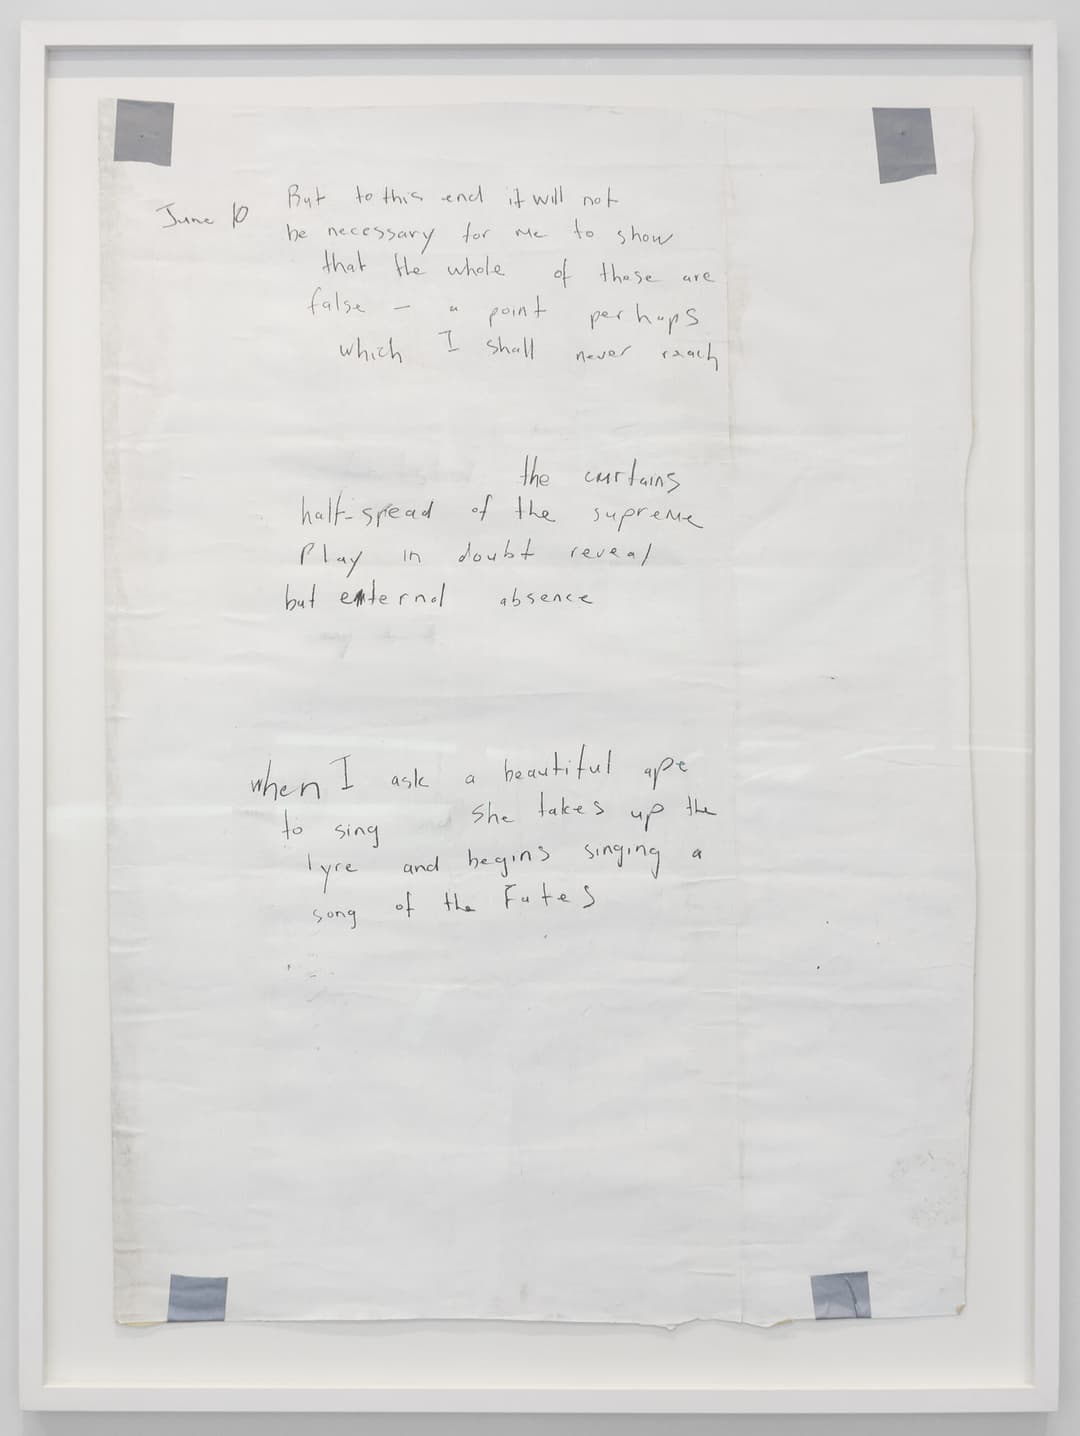 June 10
But to this end it will not
be necessary for me to show
that the whole of these are
false – a point perhaps
which I shall never reach
the curtains
half-spread of the supreme
Play in doubt reveal
but external absence
when I ask a beautiful ape
to sing she takes up the
lyre and begins singing a
song of the Fates